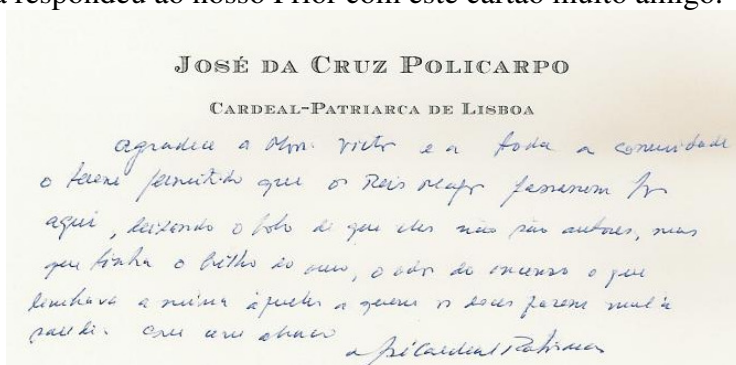 respondeu ao nosso Prior com este cartão muito amigo.
JOSÉ DA CRUZ POLICARPO
CARDEAL-PATRIARCA DE LISBOA
agradece a Mons. Victor e a toda a comunidade
o terem permitido que os Reis Magos passassem por
aqui, deixando o bolo de que eles não são autores, mas
que tinha o brilho do ouro, o odor do incenso e que
lembrava a mirra àqueles a quem os doces fazem mal à
saúde. Com um abraço
Cardeal Patriarca